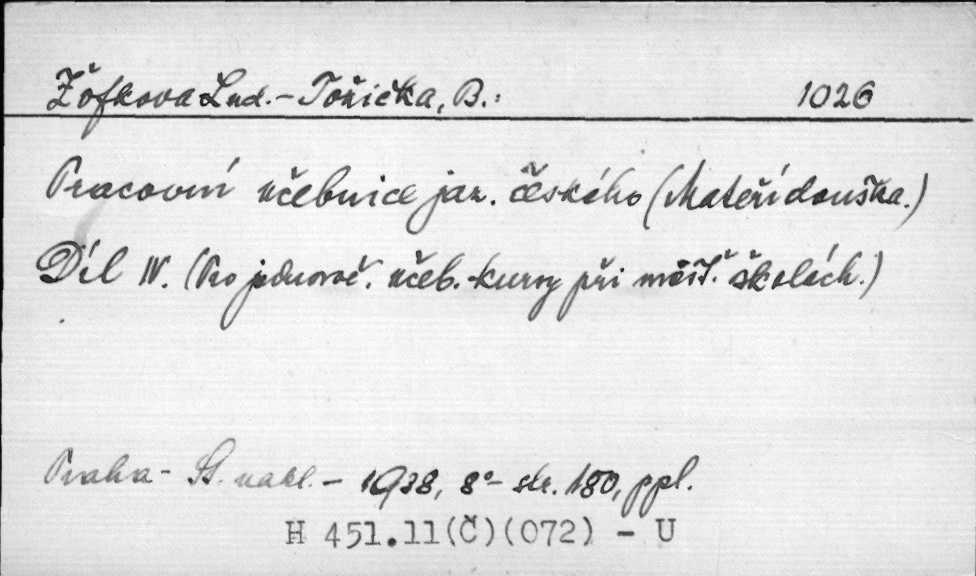 Žofkova Lud. - Tožička, B.: 1026
Pracovní učebnice jaz. českého (Mateřídouška.)
Díl IV. (Pro jednoroč. učeb. kursy při měšť. školách.)
Praha - St. nakl. - 1938, 8° - str. 180, ppl.
H 451.11(Č)(072) - U